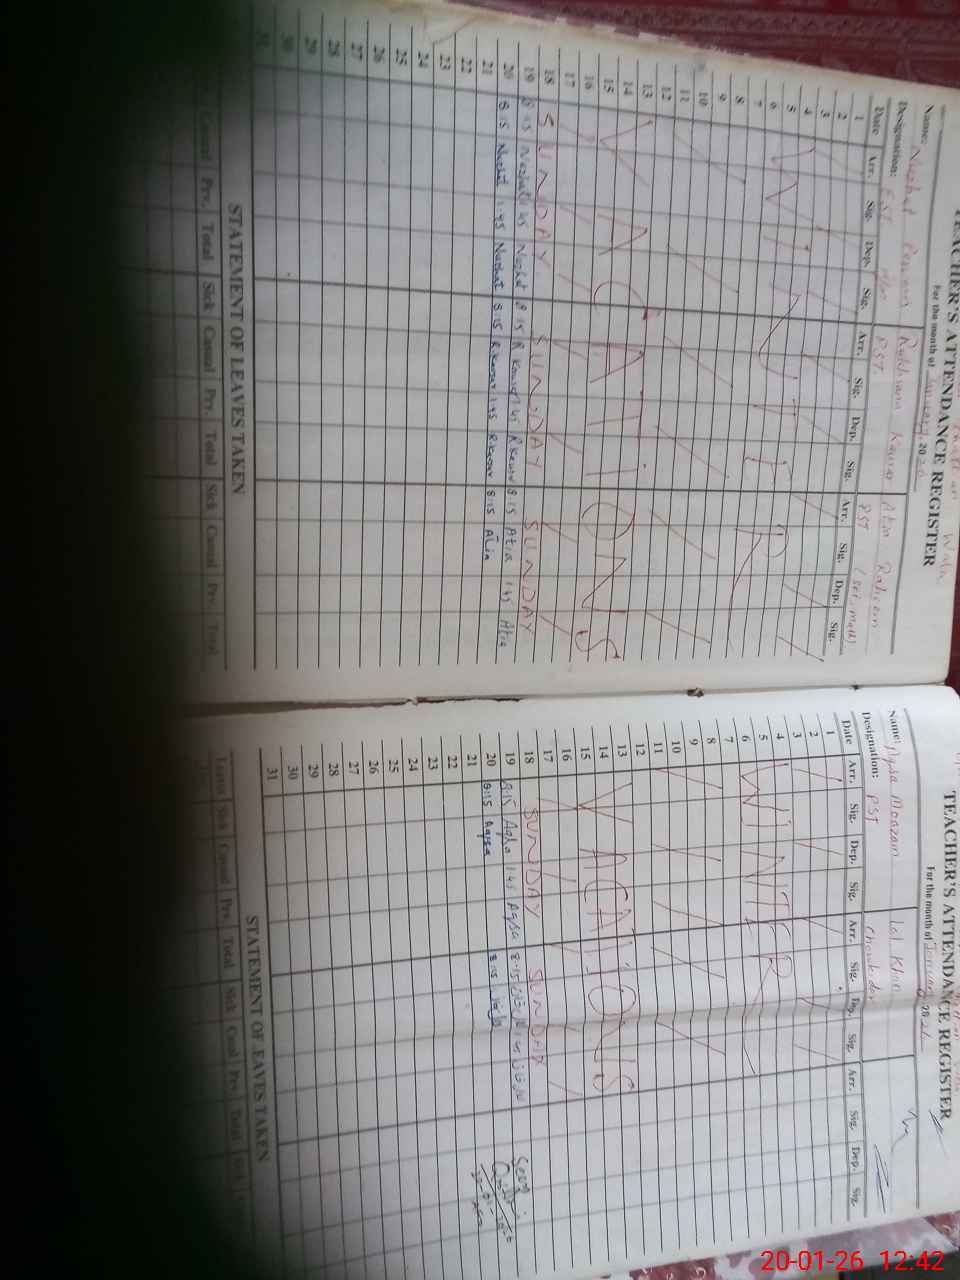 TEACHER'S ATTENDANCE REGISTER
For the month of January 2026
Name: Nuzhat Parveen Rukhsana Kausar Atia Raheem
Designation: EST PST PST (Sci. Math)
Date Arr. Sig. Dep. Sig. Arr. Sig. Dep. Sig. Arr. Sig. Dep. Sig.
1
2
3
4
5
6 WINTER
7
8
9
10
11
12
13
14
15 VACATIONS
16
17
18 SUNDAY SUNDAY SUNDAY
19 8:15 Nuzhat 1:45 Nuzhat 8:15 R.Kausar 1:45 R.Kausar 8:15 Atia 1:45 Atia
20 8:15 Nuzhat 1:45 Nuzhat 8:15 R.Kausar 1:45 R.Kausar 8:15 Atia
21
22
23
24
25
26
27
28
29
30
31
STATEMENT OF LEAVES TAKEN
Casual Prv. Total Sick Casual Prv. Total Sick Casual Prv. Total
TEACHER'S ATTENDANCE REGISTER
For the month of January 2026
Name: Aqsa Moazam Lal Khan
Designation: PST Chowkidar
Date Arr. Sig. Dep. Sig. Arr. Sig. Dep. Sig. Arr. Sig. Dep. Sig.
1
2
3
4
5 WINTER
6
7
8
9
10
11
12
13
14 VACATIONS
15
16
17
18 SUNDAY SUNDAY
19 8:15 Aqsa 1:45 Aqsa 8:15 1:45
20 8:15 Aqsa 8:15
21 Seen
22
23
24
25
26
27
28
29
30
31
STATEMENT OF LEAVES TAKEN
Leaves Sick Casual Prv. Total Sick Casual Prv. Total Sick
20-01-26 12:42